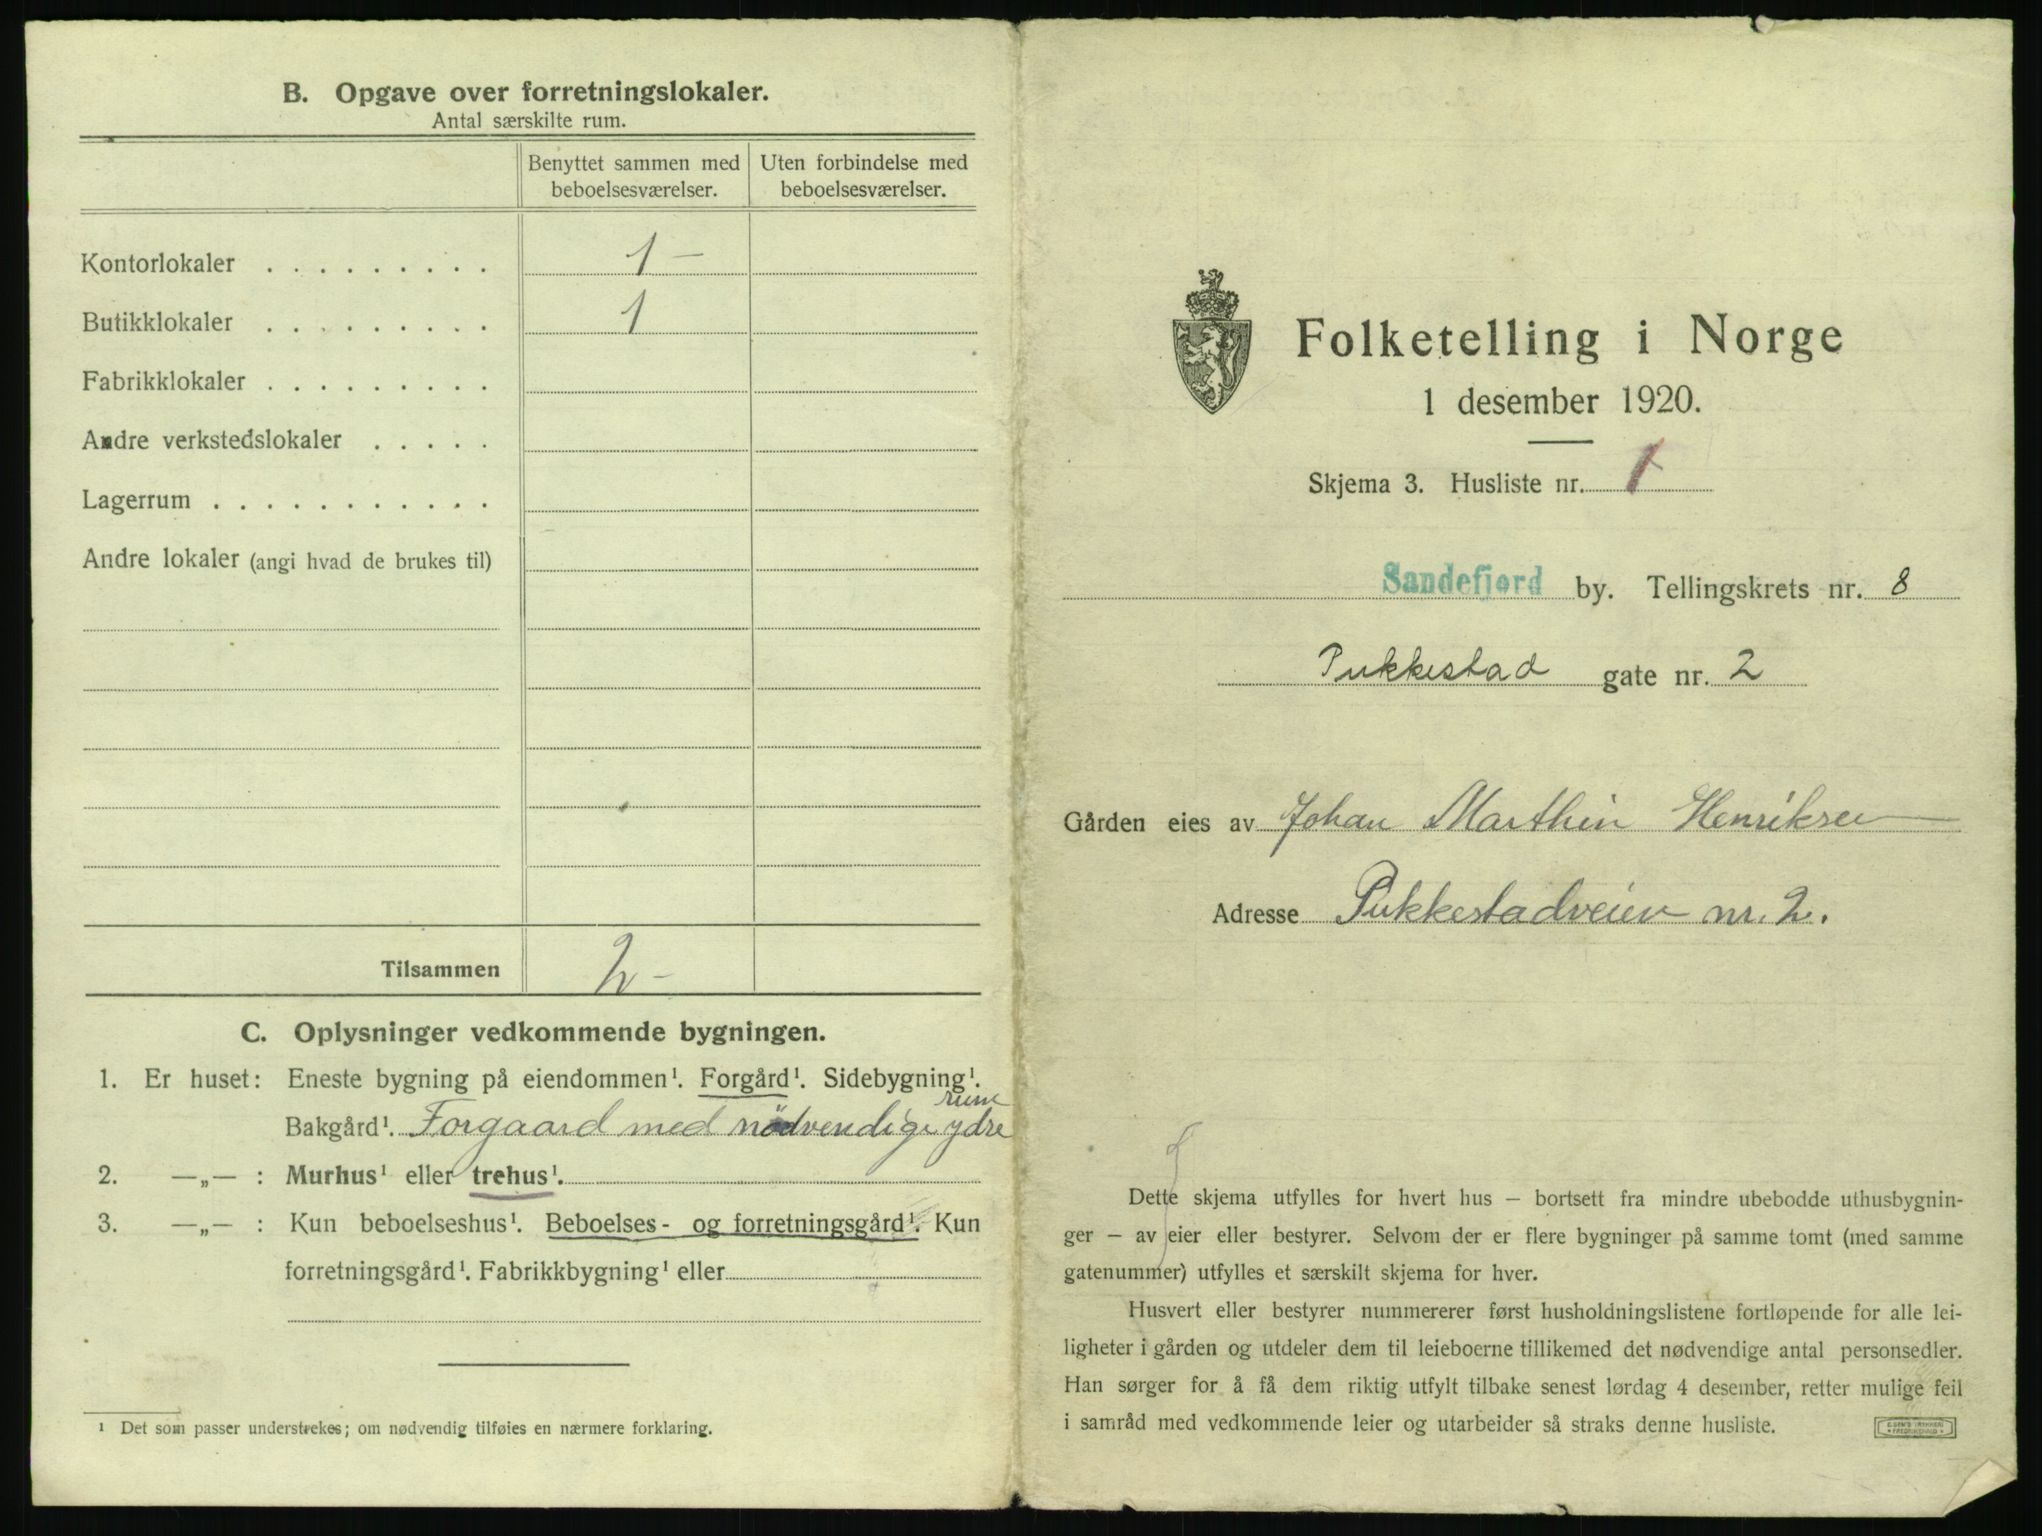 B. Opgave over forretningslokaler.
Antal særskilte rum.
Benyttet sammen med beboelsesværelser.
Uten forbindelse med beboelsesværelser.
Kontorlokaler . . . . . . . . . 1 –
Butikklokaler . . . . . . . . . 1
Fabrikklokaler . . . . . . . . .
Andre verkstedslokaler . . . . .
Lagerrum . . . . . . . . . . .
Andre lokaler (angi hvad de brukes til)
Tilsammen 2 –
C. Oplysninger vedkommende bygningen.
1. Er huset: Eneste bygning på eiendommen¹. Forgård¹. Sidebygning¹.
Bakgård¹. Forgaard med nödvendige ydre rum
2. —„— : Murhus¹ eller trehus¹.
3. —„— : Kun beboelseshus¹. Beboelses- og forretningsgård¹. Kun
forretningsgård¹. Fabrikkbygning¹ eller
¹ Det som passer understrekes; om nødvendig tilføies en nærmere forklaring.
Folketelling i Norge
1 desember 1920.
Skjema 3. Husliste nr. 1
Sandefjord by. Tellingskrets nr. 8
Pukkestad gate nr. 2
Gården eies av Johan Marthin Henriksen
Adresse Pukkestadveien nr. 2.
Dette skjema utfylles for hvert hus – bortsett fra mindre ubebodde uthusbygnin-
ger – av eier eller bestyrer. Selvom der er flere bygninger på samme tomt (med samme
gatenummer) utfylles et særskilt skjema for hver.
Husvert eller bestyrer nummererer først husholdningslistene fortløpende for alle lei-
ligheter i gården og utdeler dem til leieboerne tillikemed det nødvendige antal personsedler.
Han sørger for å få dem riktig utfylt tilbake senest lørdag 4 desember, retter mulige feil
i samråd med vedkommende leier og utarbeider så straks denne husliste.